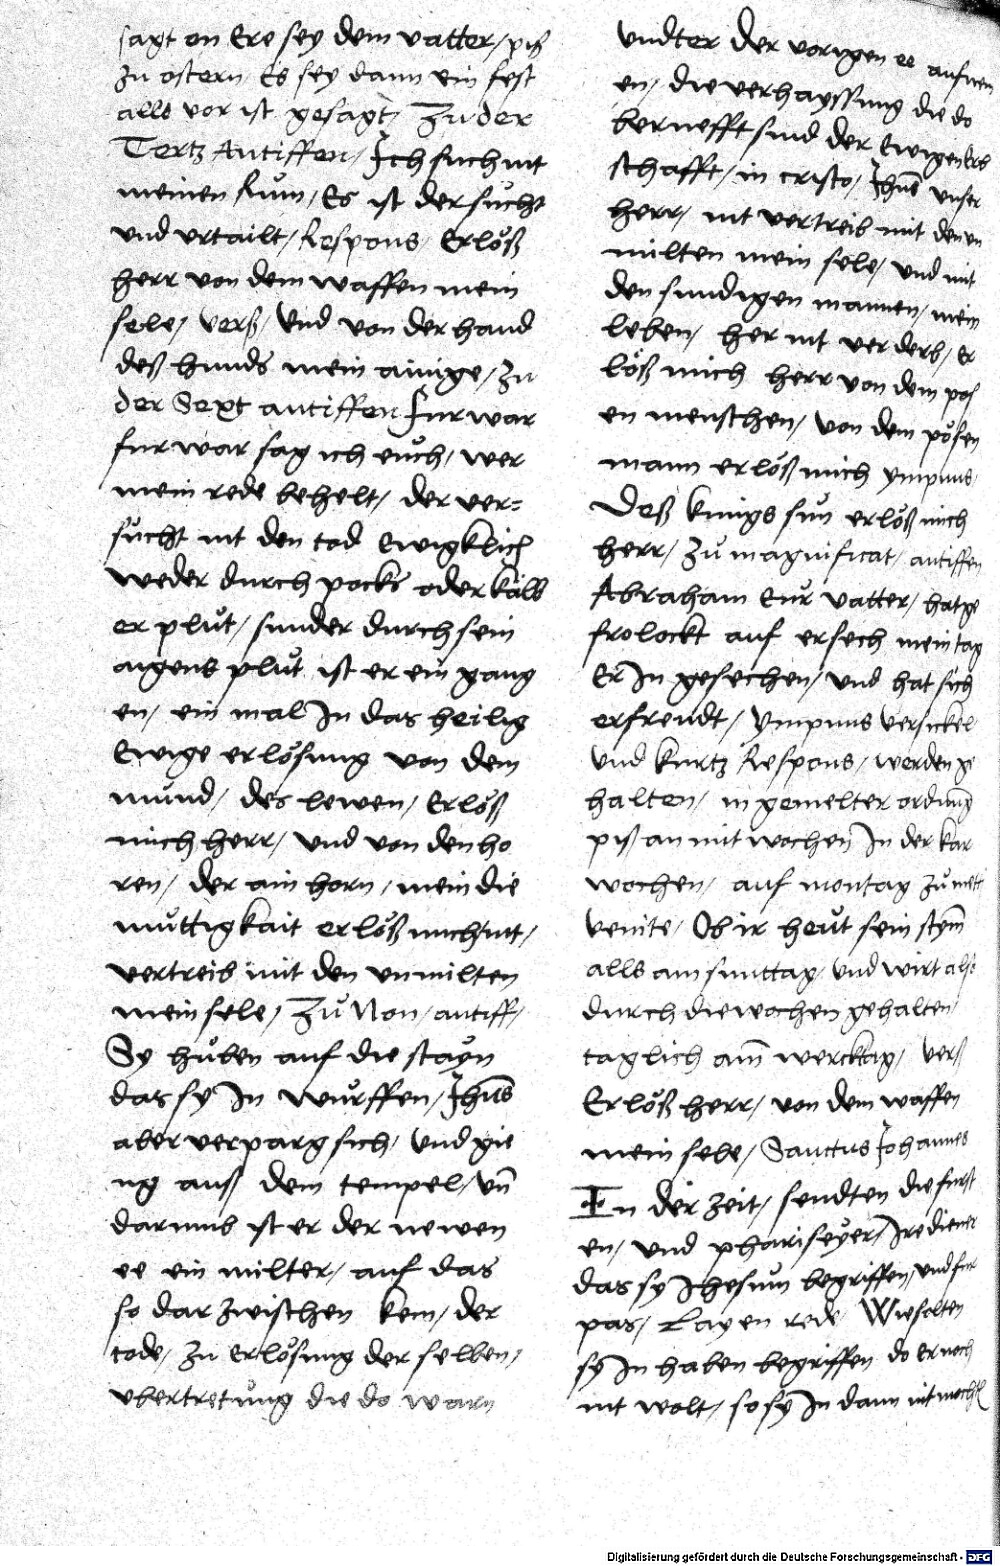 sagt on Ere sey dem vatter / piß
zu ostern Es sey dann ein fest
alls vor ist gesagt / Zu der
Tertz Antiffen / Ich such nit
meinen Rum / Es ist der sucht
und urtailt / Respons / Erlöß
herr von dem waffen mein
sele / verß / Und von der hand
deß hunds mein ainige / Zu
der Sext antiffen Furwar
fur war sag ich euch / wer
mein rede behelt / der ver=
sucht nit den tod Ewigklich
weder durch pocks oder kälb
er plut / sunder durch sein
aigens plut ist er ein gang
en / ein mal In das heilig
Ewige erlösung von dem
mund / des lewen / Erlöß
mich herr / und von den ho
ren / der ain horn / mein die
muttigkait erlöß mich / nit /
vertreib mit den unmilten
mein sele / Zu Non / antiff /
Sy huben auf die stayn
das sy In wurffen / Jhūs
aber verparg sich / Und gie
ng auß dem tempel / uñ
darumb ist er der newen
ee ein milter / auf das
so dar zwischen kem / der
tode / zu Erlösung der selben /
ubertretung die do warn
undter der vorigen ee aufnem
en / die verhayssung die do
berufft sind der Ewigen Erb
schafft / in cristo / Jhūs unser
herr / nit vertreib mit den un
milten mein sele / und mit
den sundigen mannen / mein
leben / her nit verderb / Er
löß mich herr von dem pos
en menschen / von dem pösen
mann erlöß mich ympnus
Deß kunigs sun erlöß mich
herr / Zu magnificat / antiffen
Abraham Eur vatter / hat ge
frolockt auf ersech mein tag
Er In gesechen / und hat sich
erfreudt / Ympnus versickel
und kurtz Respons / werden ge
halten / in gemelter ordnung
piß an mitwochen In der kar
wochen / auf montag zu mett
venite / Ob ir heut sein stym̄
alls am sunttag / und wirt also
durch die wochen gehalten
taglich am̄ wercktag / verß
Erlöß herr / von dem waffen
mein sele / Sanctus Johannes
In der zeit / sendten die furst
en / und phariseyer / Ire diener
das sy Jhesum begriffen / und fur
pas / Layen rede Wie solten
sy In haben begriffen do Er noch
nit wolt / so sy In dann nit mocht
Digitalisierung gefördert durch die Deutsche Forschungsgemeinschaft - DFG